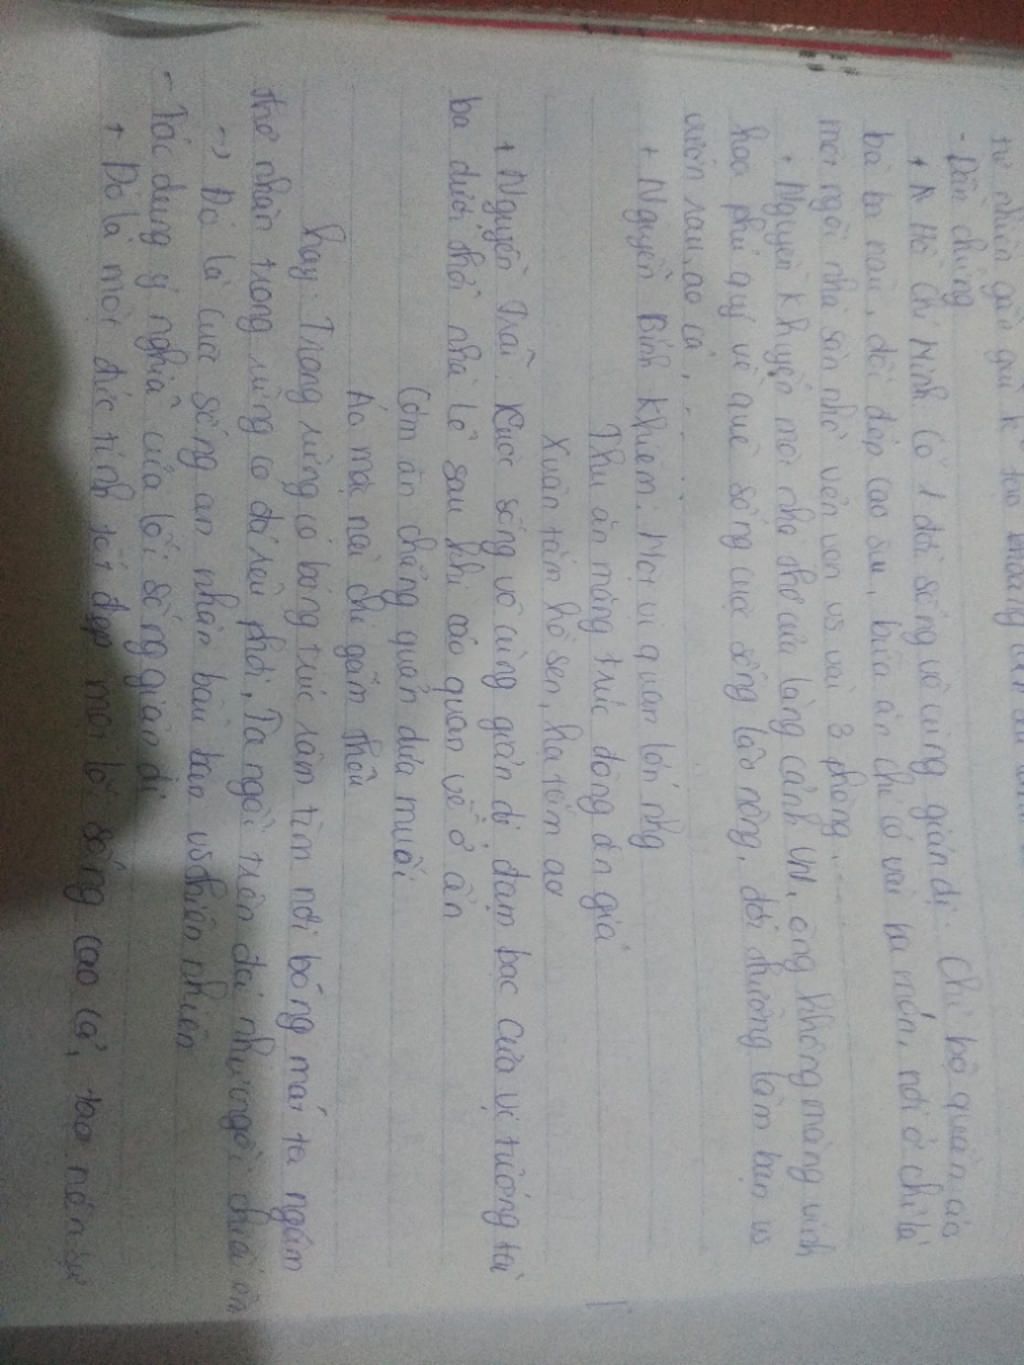 tự nhiên gần gũi k
- Dẫn chứng
+ Hồ Chí Minh có 1 đời sống vô cùng giản dị: Chỉ bộ quần áo
bà ba nâu, đôi dép cao su, bữa ăn chỉ có vài ba món, nơi ở chỉ là
một ngôi nhà sàn nhỏ vẻn vẹn vs vài 3 phòng.....
+ Nguyễn Khuyến một nhà thơ của làng cảnh VN, ông không màng vinh
hoa phú quý về quê sống cuộc sống lão nông, đời thường làm bạn vs
vườn rau, ao cá, ...
+ Nguyễn Bỉnh Khiêm: Một vị quan lớn nhg
Thu ăn măng trúc đông ăn giá
Xuân tắm hồ sen, hạ tắm ao
+ Nguyễn Trãi: Cuộc sống vô cùng giản dị đạm bạc của vị tướng tài
ba dưới thời nhà Lê sau khi cáo quan về ở ẩn
Cơm ăn chẳng quản dưa muối
Áo mặc nài chi gấm thêu
hay: Trong rừng có bóng trúc râm tìm nơi bóng mát ta ngâm
thơ nhàn trong rừng có đá rêu phơi, Ta ngồi trên đá như ngồi chiếu êm
-> Đó là cuộc sống an nhàn bầu bạn vs thiên nhiên
- Tác dụng ý nghĩa của lối sống giản dị
+ Đó là một đức tính tốt đẹp một lối sống cao cả, tạo nên sự